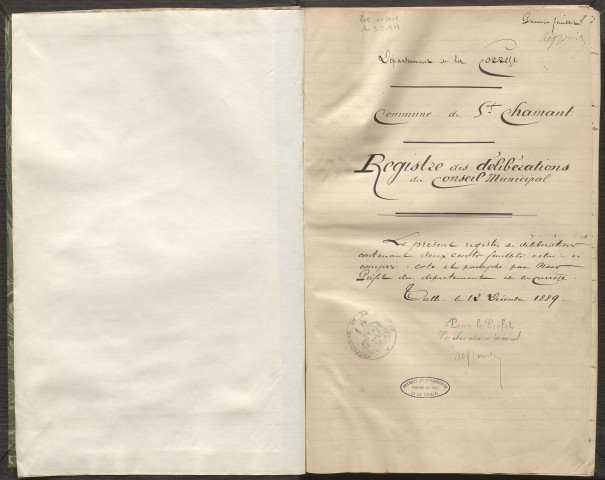 Premier feuillet
Département de la Corrèze
Commune de St Chamant
Registre des délibérations
du Conseil Municipal
Le présent registre de délibérations
contenant deux cents feuillets celui-ci
compris, coté et paraphé par Nous
Préfet du département de la Corrèze
Tulle le 12 Décembre 1889.
Pour le Préfet
Le Secrétaire Général
ARCHIVES DÉPARTEMENTALES
DE LA CORRÈZE